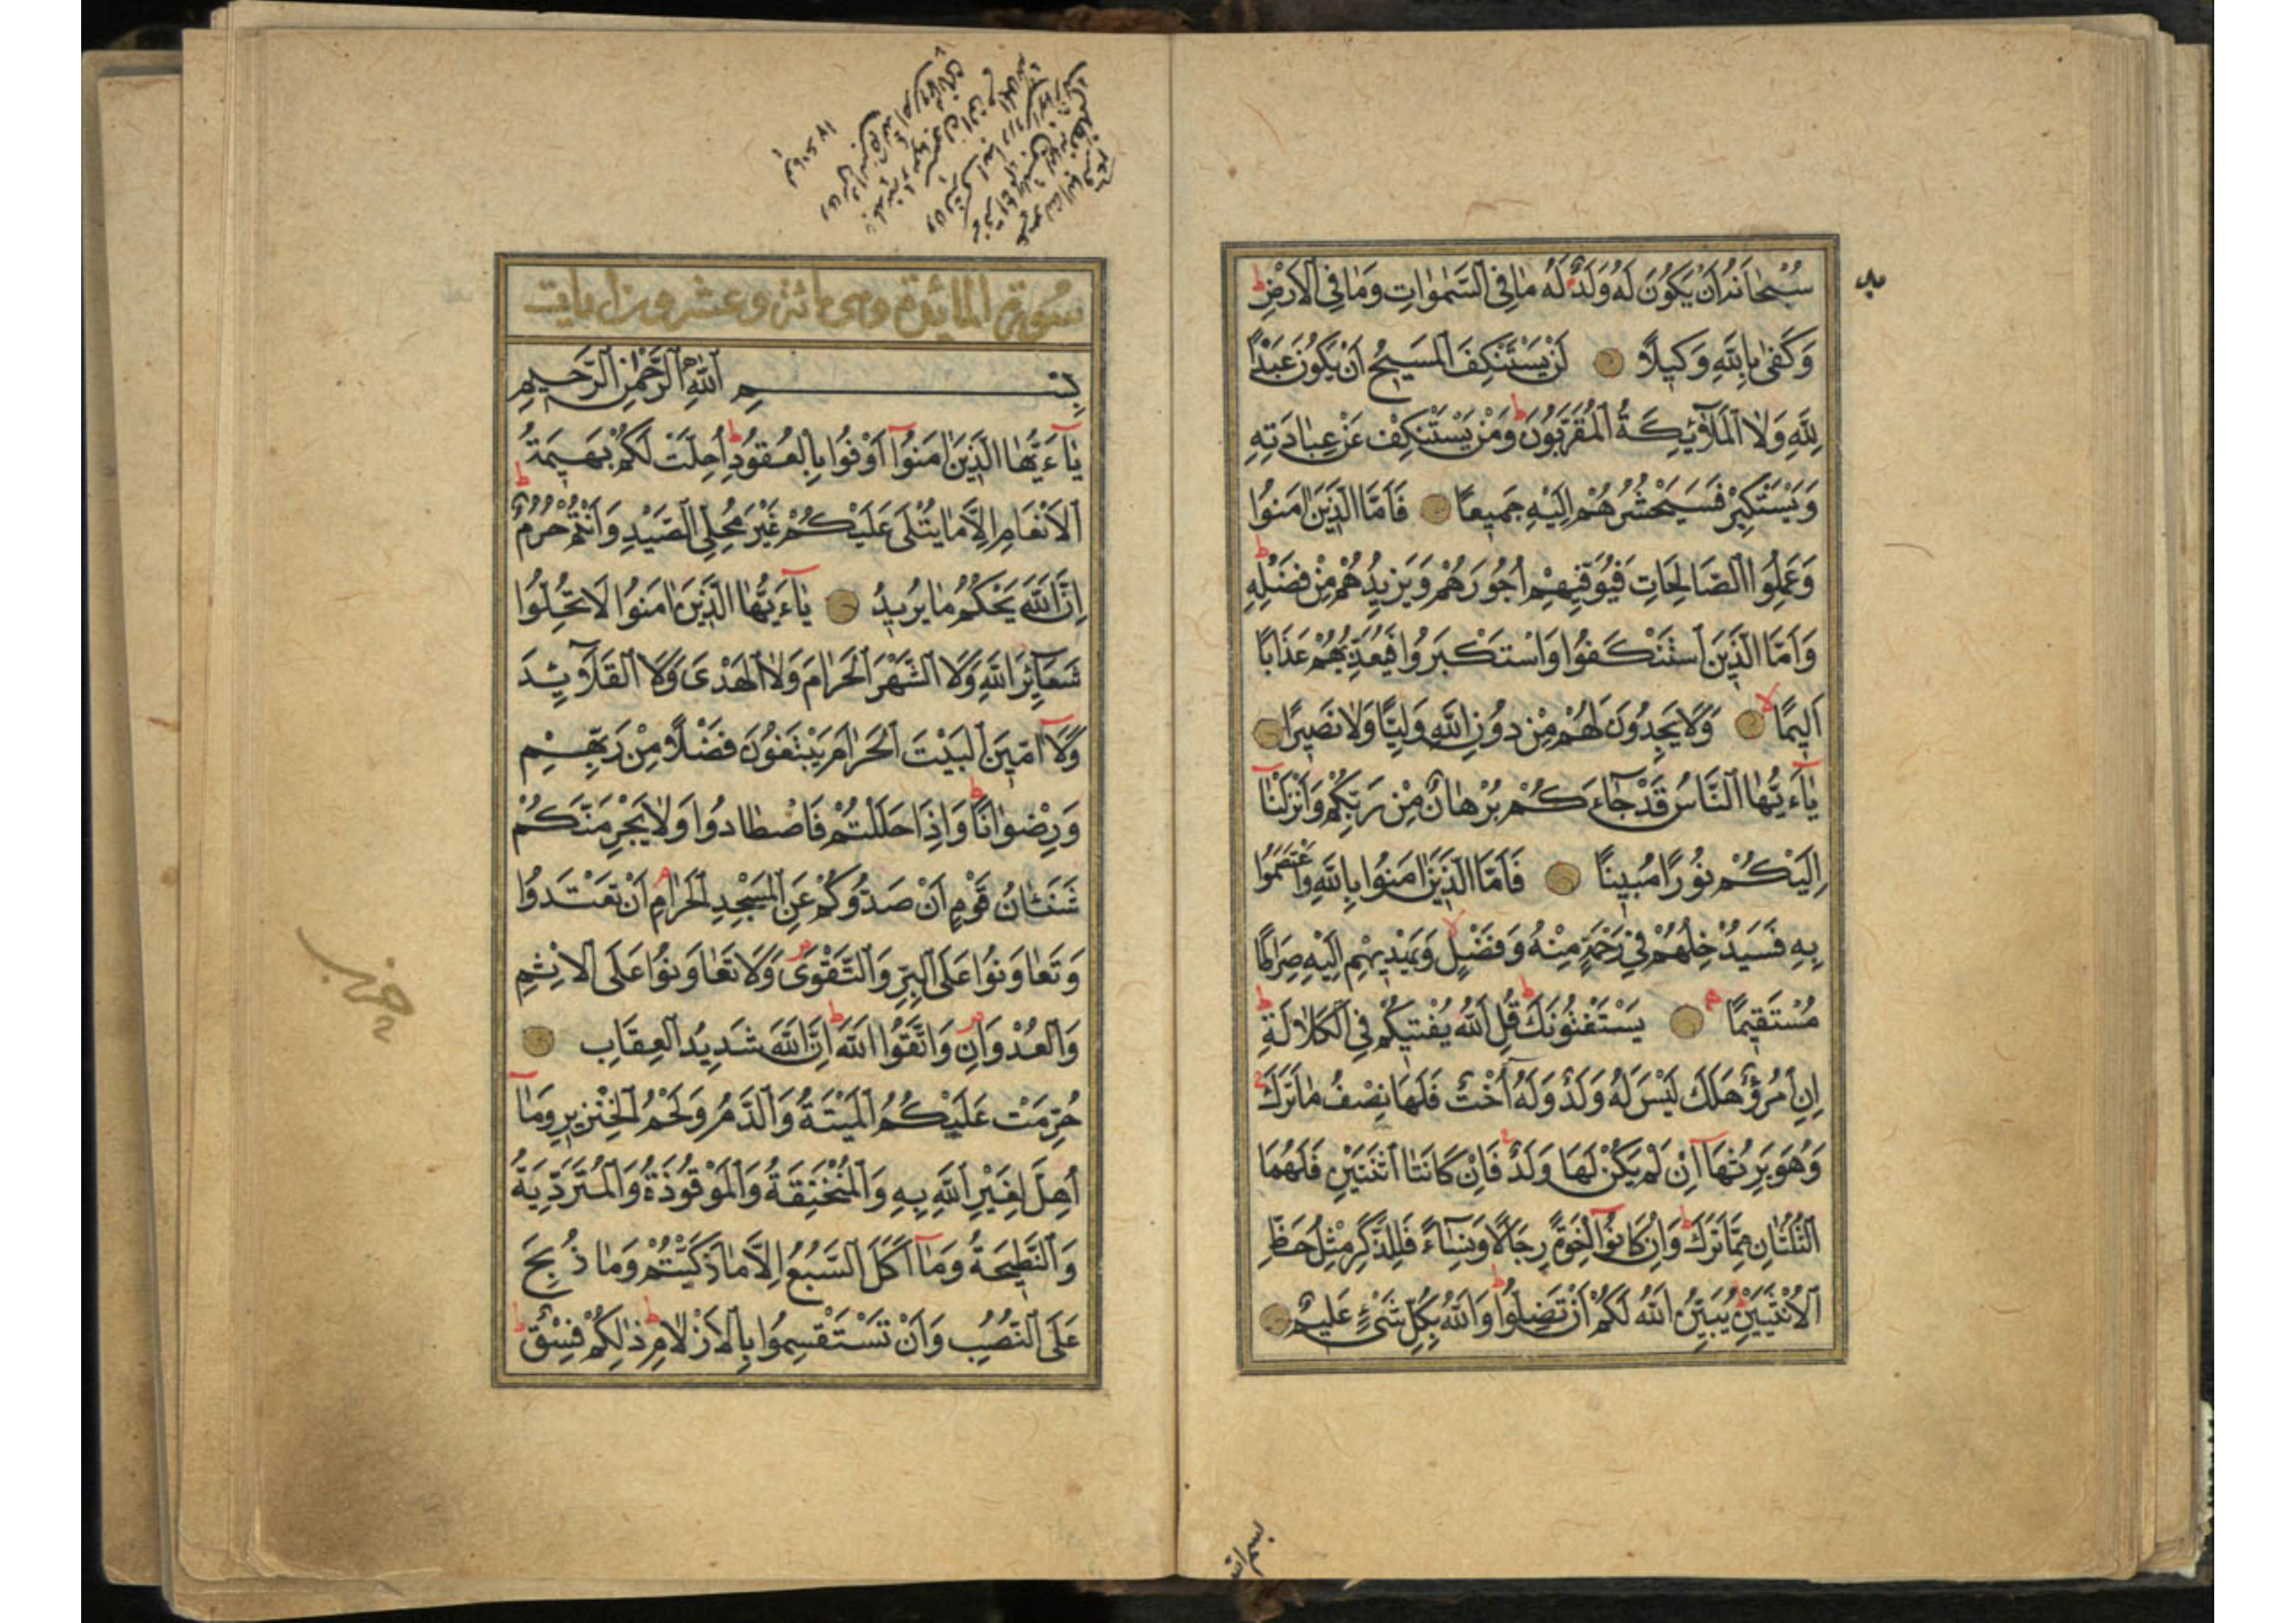 سُبْحَانَهُ اَنْ يَكُونَ لَهُ وَلَدٌ لَهُ مَا فِى السَّمٰوَاتِ وَمَا فِى الْاَرْضِ
وَكَفٰى بِاللّٰهِ وَكِيلًا لَنْ يَسْتَنْكِفَ الْمَسِيحُ اَنْ يَكُونَ عَبْدًا
لِلّٰهِ وَلَا الْمَلٰٓئِكَةُ الْمُقَرَّبُونَ وَمَنْ يَسْتَنْكِفْ عَنْ عِبَادَتِهِ
وَيَسْتَكْبِرْ فَسَيَحْشُرُهُمْ اِلَيْهِ جَمِيعًا فَاَمَّا الَّذِينَ اٰمَنُوا
وَعَمِلُوا الصَّالِحَاتِ فَيُوَفِّيهِمْ اُجُورَهُمْ وَيَزِيدُهُمْ مِنْ فَضْلِهِ
وَاَمَّا الَّذِينَ اسْتَنْكَفُوا وَاسْتَكْبَرُوا فَيُعَذِّبُهُمْ عَذَابًا
اَلِيمًا وَلَا يَجِدُونَ لَهُمْ مِنْ دُونِ اللّٰهِ وَلِيًّا وَلَا نَصِيرًا
يَآءَيُّهَا النَّاسُ قَدْ جَآءَكُمْ بُرْهَانٌ مِنْ رَبِّكُمْ وَاَنْزَلْنَا
اِلَيْكُمْ نُورًا مُبِينًا فَاَمَّا الَّذِينَ اٰمَنُوا بِاللّٰهِ وَاعْتَصَمُوا
بِهِ فَسَيُدْخِلُهُمْ فِى رَحْمَةٍ مِنْهُ وَفَضْلٍ وَيَهْدِيهِمْ اِلَيْهِ صِرَاطًا
مُسْتَقِيمًا يَسْتَفْتُونَكَ قُلِ اللّٰهُ يُفْتِيكُمْ فِى الْكَلَالَةِ
اِنِ امْرُؤٌ هَلَكَ لَيْسَ لَهُ وَلَدٌ وَلَهُ اُخْتٌ فَلَهَا نِصْفُ مَا تَرَكَ
وَهُوَ يَرِثُهَآ اِنْ لَمْ يَكُنْ لَهَا وَلَدٌ فَاِنْ كَانَتَا اثْنَتَيْنِ فَلَهُمَا
الثُّلُثَانِ مِمَّا تَرَكَ وَاِنْ كَانُوٓا اِخْوَةً رِجَالًا وَنِسَآءً فَلِلذَّكَرِ مِثْلُ حَظِّ
الْاُنْثَيَيْنِ يُبَيِّنُ اللّٰهُ لَكُمْ اَنْ تَضِلُّوا وَاللّٰهُ بِكُلِّ شَىْءٍ عَلِيمٌ
بسم الله
سورة المائدة وهى مائة وعشرون ايات
بِسْمِ اللّٰهِ الرَّحْمٰنِ الرَّحِيمِ
يَآءَيُّهَا الَّذِينَ اٰمَنُوٓا اَوْفُوا بِالْعُقُودِ اُحِلَّتْ لَكُمْ بَهِيمَةُ
الْاَنْعَامِ اِلَّا مَا يُتْلٰى عَلَيْكُمْ غَيْرَ مُحِلِّى الصَّيْدِ وَاَنْتُمْ حُرُمٌ
اِنَّ اللّٰهَ يَحْكُمُ مَا يُرِيدُ يَآءَيُّهَا الَّذِينَ اٰمَنُوا لَا تُحِلُّوا
شَعَآئِرَ اللّٰهِ وَلَا الشَّهْرَ الْحَرَامَ وَلَا الْهَدْىَ وَلَا الْقَلَآئِدَ
وَلَآ اٰمِّينَ الْبَيْتَ الْحَرَامَ يَبْتَغُونَ فَضْلًا مِنْ رَبِّهِمْ
وَرِضْوَانًا وَاِذَا حَلَلْتُمْ فَاصْطَادُوا وَلَا يَجْرِمَنَّكُمْ
شَنَئَانُ قَوْمٍ اَنْ صَدُّوكُمْ عَنِ الْمَسْجِدِ الْحَرَامِ اَنْ تَعْتَدُوا
وَتَعَاوَنُوا عَلَى الْبِرِّ وَالتَّقْوٰى وَلَا تَعَاوَنُوا عَلَى الْاِثْمِ
وَالْعُدْوَانِ وَاتَّقُوا اللّٰهَ اِنَّ اللّٰهَ شَدِيدُ الْعِقَابِ
حُرِّمَتْ عَلَيْكُمُ الْمَيْتَةُ وَالدَّمُ وَلَحْمُ الْخِنْزِيرِ وَمَآ
اُهِلَّ لِغَيْرِ اللّٰهِ بِهِ وَالْمُنْخَنِقَةُ وَالْمَوْقُوذَةُ وَالْمُتَرَدِّيَةُ
وَالنَّطِيحَةُ وَمَآ اَكَلَ السَّبُعُ اِلَّا مَا ذَكَّيْتُمْ وَمَا ذُبِحَ
عَلَى النُّصُبِ وَاَنْ تَسْتَقْسِمُوا بِالْاَزْلَامِ ذٰلِكُمْ فِسْقٌ
حزب